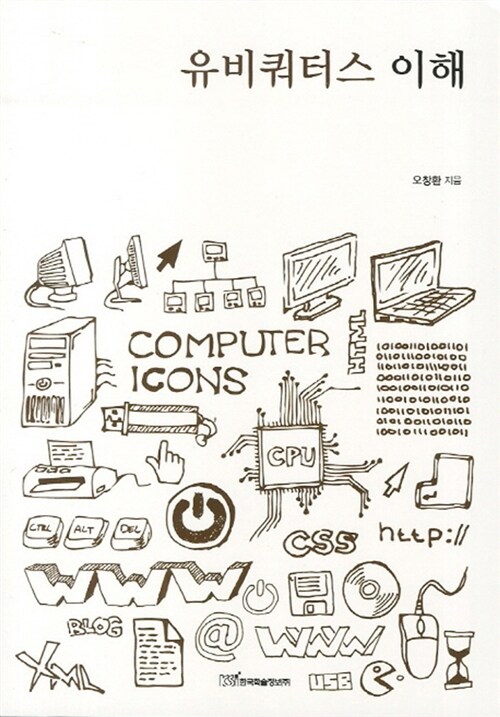 유비쿼터스 이해
오창환 지음
COMPUTER
ICONS
HTML
CPU
CTRL ALT DEL
CSS
http://
WWW
BLOG
@
WWW
XML
USB
KSi 한국학술정보㈜